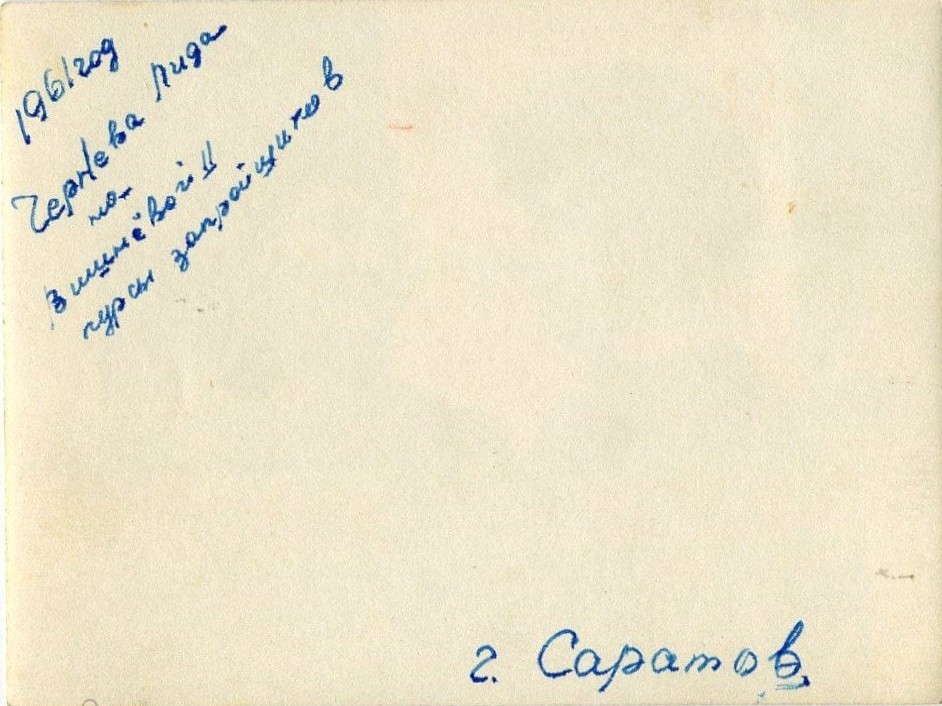 1961 год
Чернева Лида
на
Вишнёвой 11
курсы закройщиков
г. Саратов